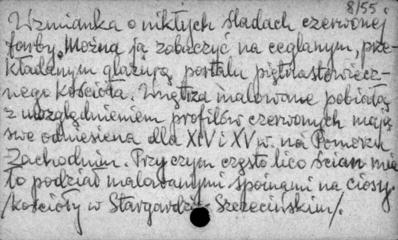 8/55
Wzmianka o nikłych śladach czerwonej
farby. Można ją zobaczyć na ceglanym, prze-
kładanym glazurą portalu piętnastowiecz-
nego kościoła. Wnętrza malowane pobiałą
z uwzględnieniem profilów czerwonych mają
swe odniesienia dla XIV i XV w. na Pomorzu
Zachodnim. Przy czym często lico ścian mia
ło podział malowanymi spoinami na ciosy.
/kościoły w Stargardzie Szczecińskim/.